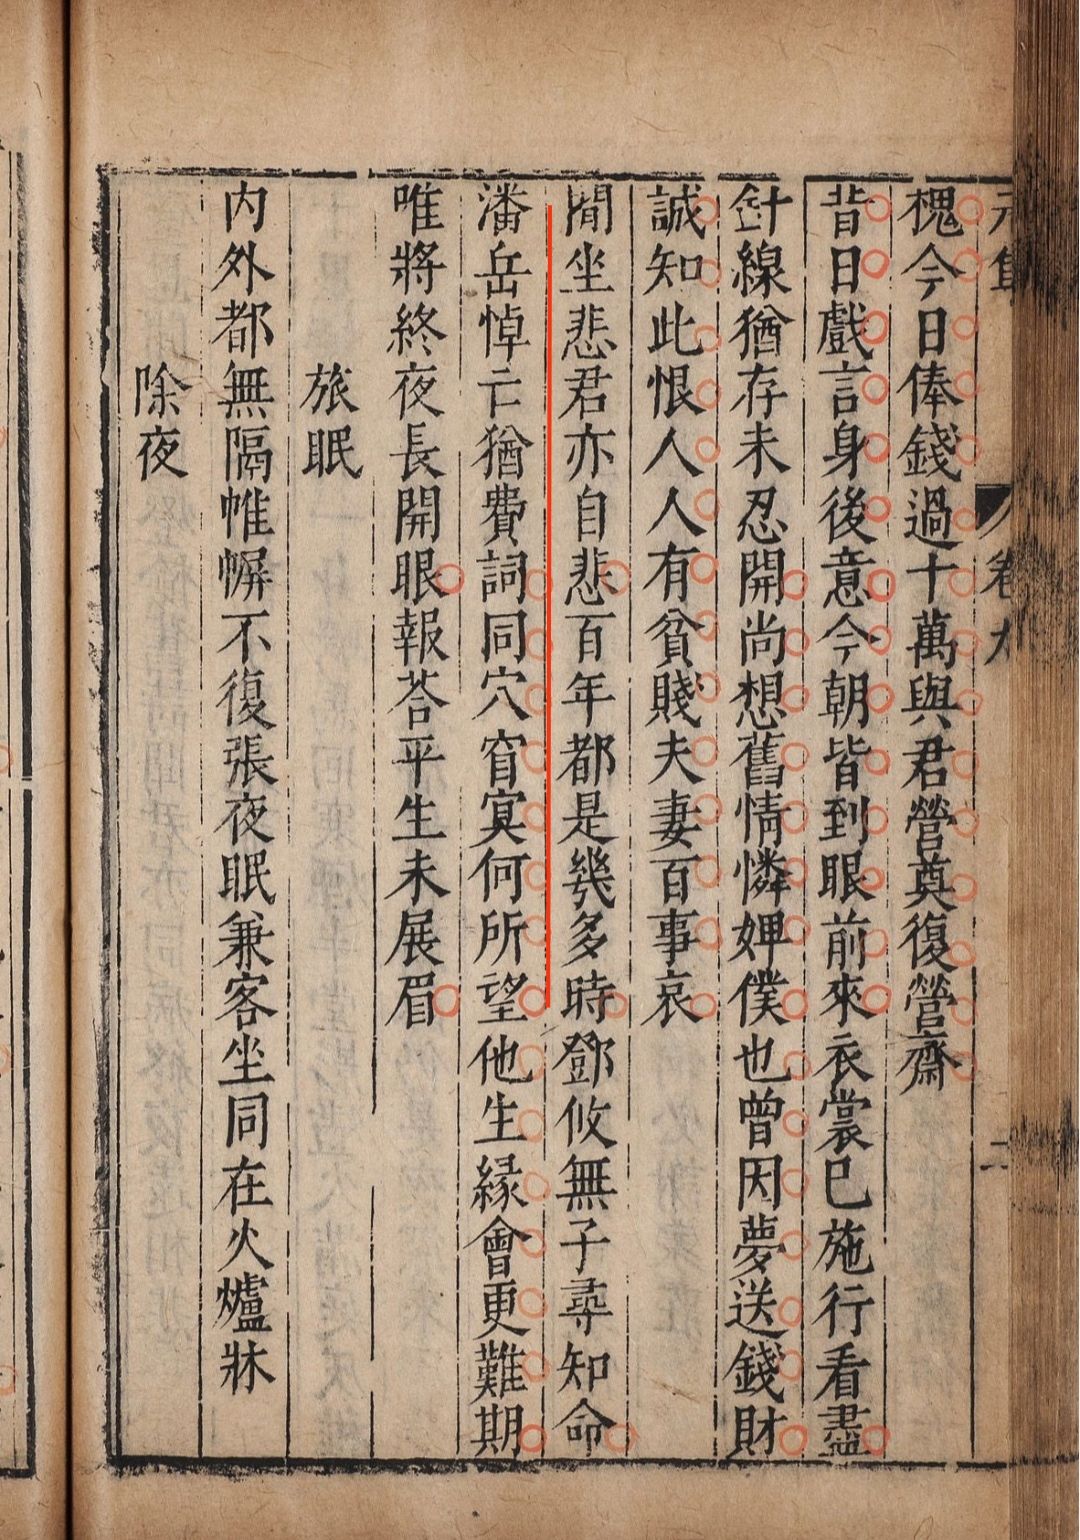 元集 卷九 二
槐今日俸錢過十萬與君營奠復營齋
昔日戲言身後意今朝皆到眼前來衣裳已施行看盡
針線猶存未忍開尚想舊情憐婢僕也曾因夢送錢財
誠知此恨人人有貧賤夫妻百事哀
閒坐悲君亦自悲百年都是幾多時鄧攸無子尋知命
潘岳悼亡猶費詞同穴窅冥何所望他生緣會更難期
唯將終夜長開眼報荅平生未展眉
旅眠
內外都無隔帷㡚不復張夜眠兼客坐同在火爐牀
除夜